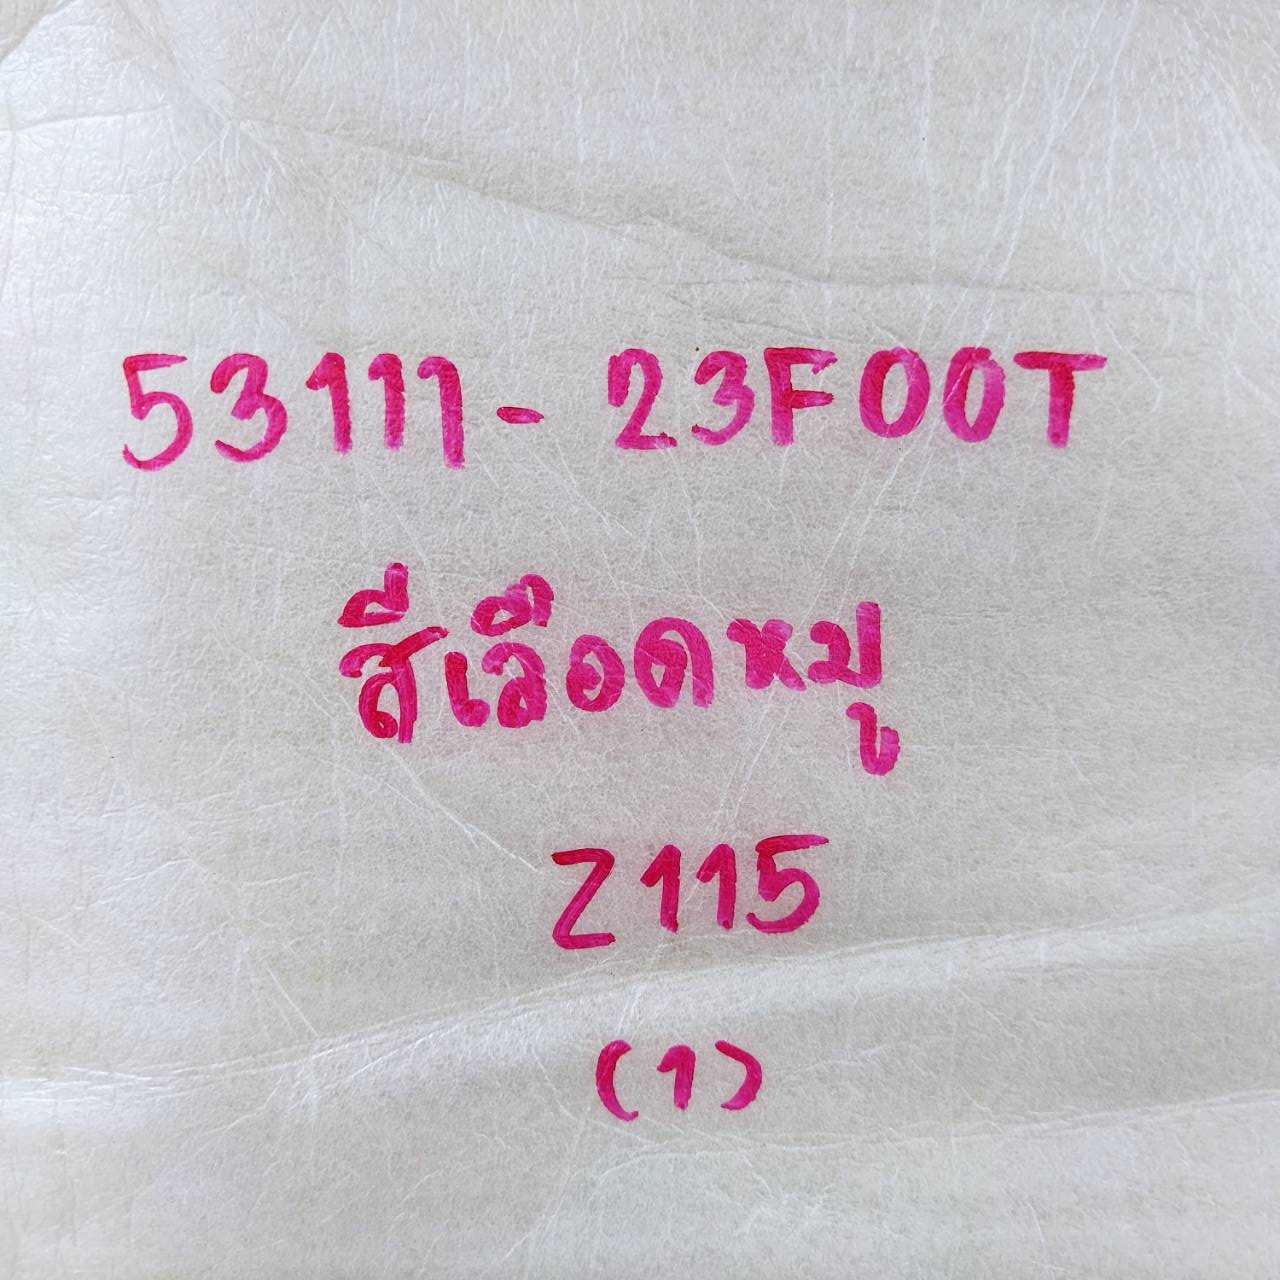 53111-23F00T
สีเลือดหมู
Z115
(1)